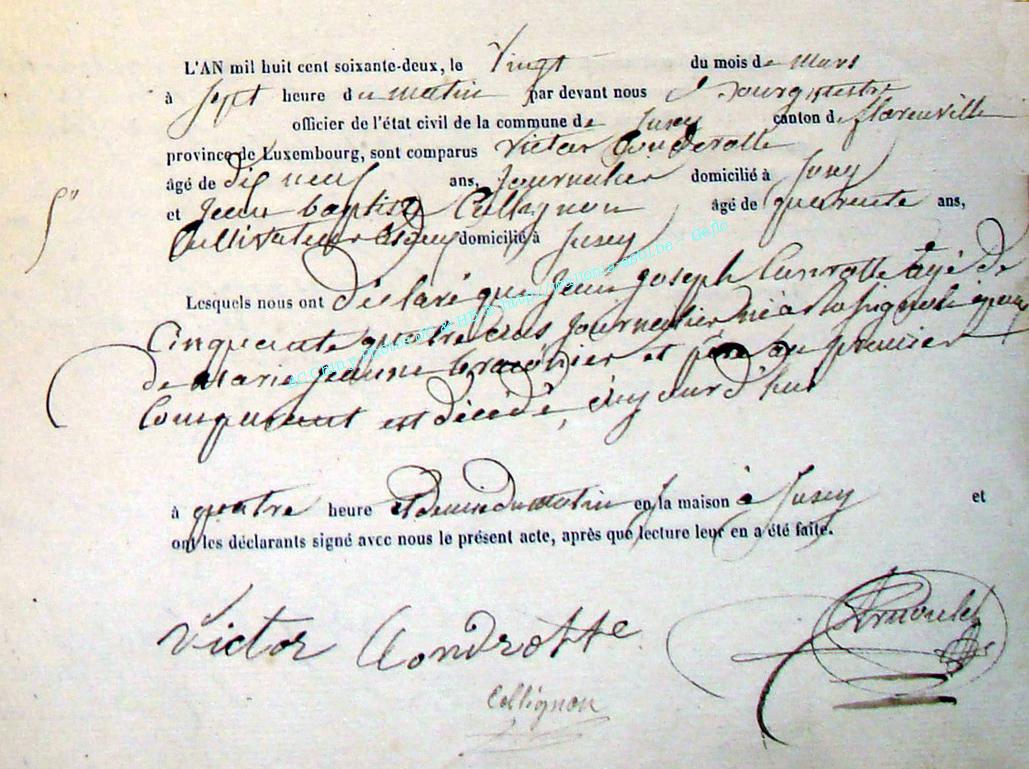 L'AN mil huit cent soixante-deux, le Vingt du mois de mars
à Sept heure du matin par devant nous Bourgmestre
officier de l'état civil de la commune de Jusey canton de florenville
province de Luxembourg, sont comparus Victor
âgé de dix neuf ans, Journalier domicilié à Jusey
et Jean baptiste Collignon âgé de quarente ans,
Cultivateur domicilié à Jusey
5"
Lesquels nous ont déclaré que Jean Joseph agé de
Cinquante quatre ans Journalier né à épou
de Marie Jeanne et père du premier
Comparant est décédé, aujourd'hui
à quatre heure et demie du matin en la maison à Jusey et
ont les déclarants signé avec nous le présent acte, après que lecture leur en a été faite.
Victor Condrotte
Collignon